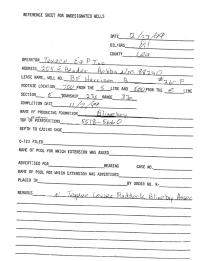 REFERENCE SHEET FOR UNDESIGNATED WELLS
DATE 2/27/98
OIL/GAS Oil
COUNTY Lea
OPERATOR Texaco E & P Inc
ADDRESS 205 E Bender Hobbs NM 88240
LEASE NAME, WELL NO. BF Harrison B #26-P
FOOTAGE LOCATION 700 FROM THE S LINE AND FROM THE E LINE
SECTION TOWNSHIP 23S RANGE
COMPLETION DATE
NAME OF PRODUCING FORMATION Blinebry
TOP OF PERFORATIONS 5518-5660
DEPTH TO CASING SHOE
C-123 FILED
NAME OF POOL FOR WHICH EXTENSION WAS ASKED
ADVERTISED FOR HEARING CASE NO.
NAME OF POOL FOR WHICH EXTENSION WAS ADVERTISED
PLACED IN BY ORDER NO. R-
REMARKS Teague Lower Paddock Blinebry Assoc